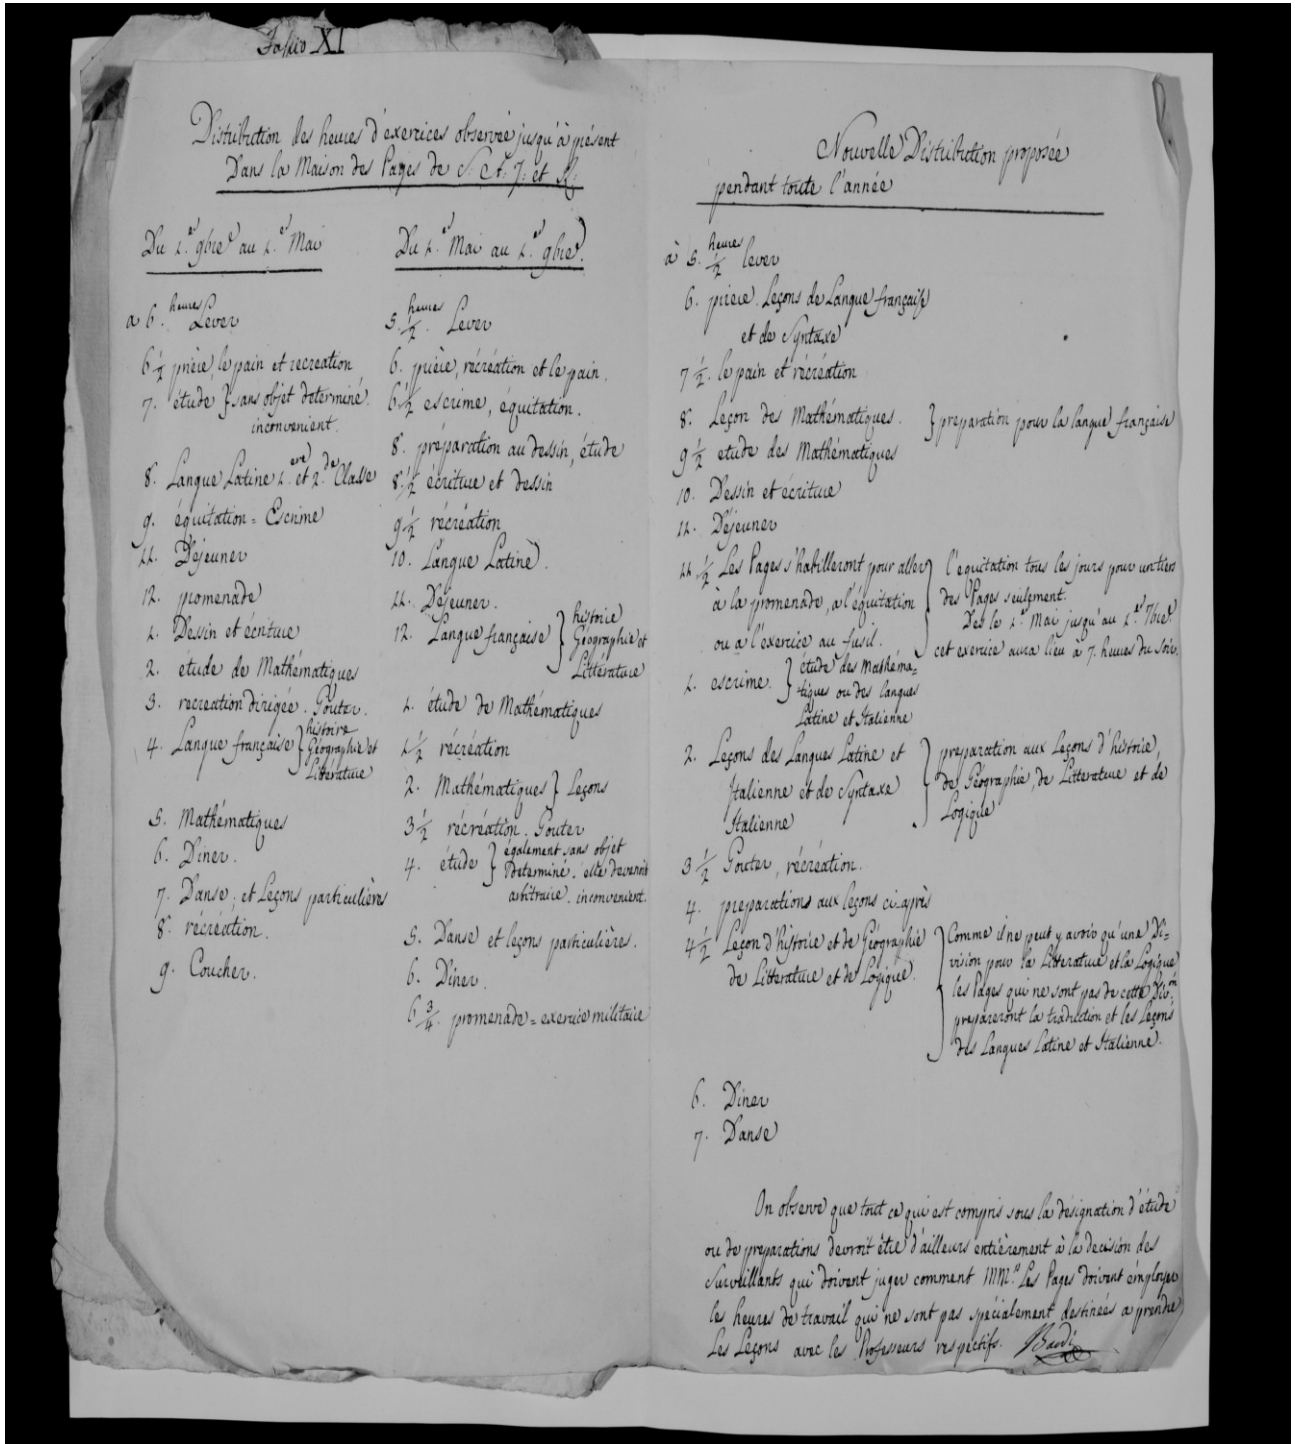 Folio XI
Distribution des heures d'exercices observée jusqu'à présent
Dans la Maison des Pages de S. A. I. et R.
Du 1.er 9bre au 1.er Mai
a 6. heures Lever
6 1/2 prière, le pain et recreation
7. étude } sans objet determiné.
inconvenient.
8. Langue Latine 1.ere et 2.de Classe
9. équitation = Escrime
11. Déjeuner
12. promenade
1. Dessin et écriture
2. étude de Mathématiques
3. recreation dirigée. Gouter.
4. Langue française } histoire
Géographie et
Littérature
5. Mathématiques
6. Diner.
7. Danse, et Leçons particulières
8. récréation.
9. Coucher.
Du 1.er Mai au 1.er 9bre.
5. 1/2. heures Lever
6. prière, récréation et le pain.
6 1/2 escrime, équitation.
8. préparation au dessin, étude
8. 1/2 écriture et dessin
9 1/2 récréation
10. Langue Latine.
11. Déjeuner.
12. Langue française } histoire
Géographie et
Littérature
1. étude de Mathématiques
1 1/2 récréation
2. Mathématiques } Leçons
3 1/2 récréation. Gouter
4. étude } egalement sans objet
determiné. elle devenoit
arbitraire. inconvenient.
5. Danse et leçons particulières.
6. Diner.
6 3/4. promenade = exercice militaire
Nouvelle Distribution proposée
pendant toute l'année
à 5. heures 1/2 lever
6. priere. Leçons de Langue française
et de Syntaxe
7 1/2. le pain et récréation
8. Leçon des Mathématiques. } preparation pour la langue française
9 1/2 etude des Mathématiques
10. Dessin et écriture
11. Déjeuner
11 1/2 Les Pages s'habilleront pour aller
à la promenade, a l'équitation
ou a l'exercice au fusil.
} l'equitation tous les jours pour un tiers
des Pages seulement.
Des le 1.er Mai jusqu'au 1.er 7bre.
cet exercice aura lieu à 7. heures du soir.
1. escrime. } étude des Mathéma-
tiques ou des langues
Latine et Italienne
2. Leçons des Langues Latine et
Italienne et de Syntaxe
Italienne
} preparation aux Leçons d'histoire,
de Géographie, de Litterature et de
Logique
3 1/2 Gouter, récréation.
4. preparations aux leçons ci-après
4 1/2 Leçon d'histoire et de Géographie
de Litterature et de Logique.
} Comme il ne peut y avoir qu'une Di-
vision pour la Litterature et la Logique
les Pages qui ne sont pas de cette Div.on
prepareront la traduction et les Leçons
des Langues Latine et Italienne.
6. Diner
7. Danse
On observe que tout ce qui est compris sous la désignation d'étude
ou de preparations devroit être d'ailleurs entièrement à la decision des
Surveillants qui doivent juger comment MM.rs Les Pages doivent employer
les heures de travail qui ne sont pas spécialement destinées a prendre
Les Leçons avec les Professeurs respectifs. Bardi